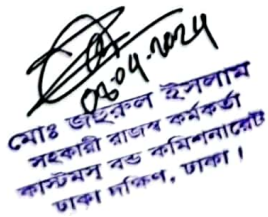 ০৮.০৭.২০২৪
মোঃ জহুরুল ইসলাম
সহকারী রাজস্ব কর্মকর্তা
কাস্টমস্ বন্ড কমিশনারেট
ঢাকা দক্ষিণ, ঢাকা।